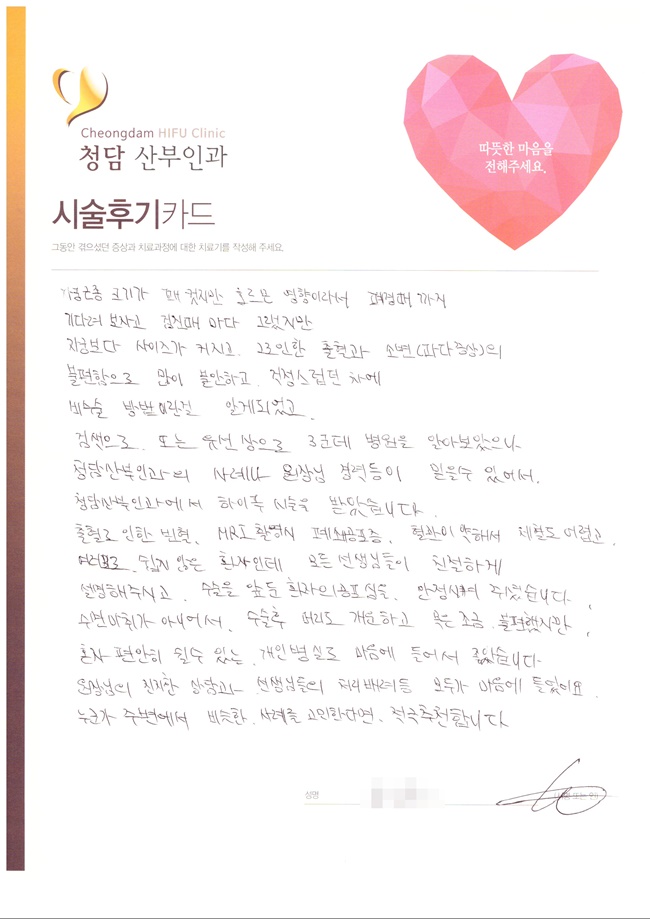 Cheongdam HIFU Clinic
청담 산부인과
따뜻한 마음을
전해주세요.
시술후기카드
그동안 겪으셨던 증상과 치료과정에 대한 치료기를 작성해 주세요.
자궁근종 크기가 꽤 컸지만 호르몬 영향이라서 폐경때 까지
기다려 보자고 검진때 마다 그랬지만
지금보다 사이즈가 커지고, 그로인한 출혈과 소변(파다증상)의
불편함으로 많이 불안하고, 걱정스럽던 차에
비수술 방법이란걸 알게되었고,
검색으로, 또는 유선상으로 3군데 병원을 알아보았으나
청담산부인과의 사례나 원장님 경력등이 믿을수 있어서,
청담산부인과에서 하이푸 시술을 받았습니다.
출혈로 인한 빈혈, MRI 촬영시 폐쇄공포증, 혈관이 약해서 채혈도 어렵고,
여러모로 쉽지 않은 환자인데 모든 선생님들이 친절하게
설명해주시고, 수술을 앞둔 환자의공포심을, 안정시켜 주셨습니다.
수면마취가 아니어서, 수술후 머리도 개운하고 몸은 조금 불편했지만,
혼자 편안히 쉴수 있는, 개인병실로 마음에 들어서 좋았습니다.
원장님의 진지한 상담과 선생님들의 배려등 모두가 마음에 들었어요.
누군가 주변에서 비슷한 사례를 고민한다면, 적극추천합니다
성명